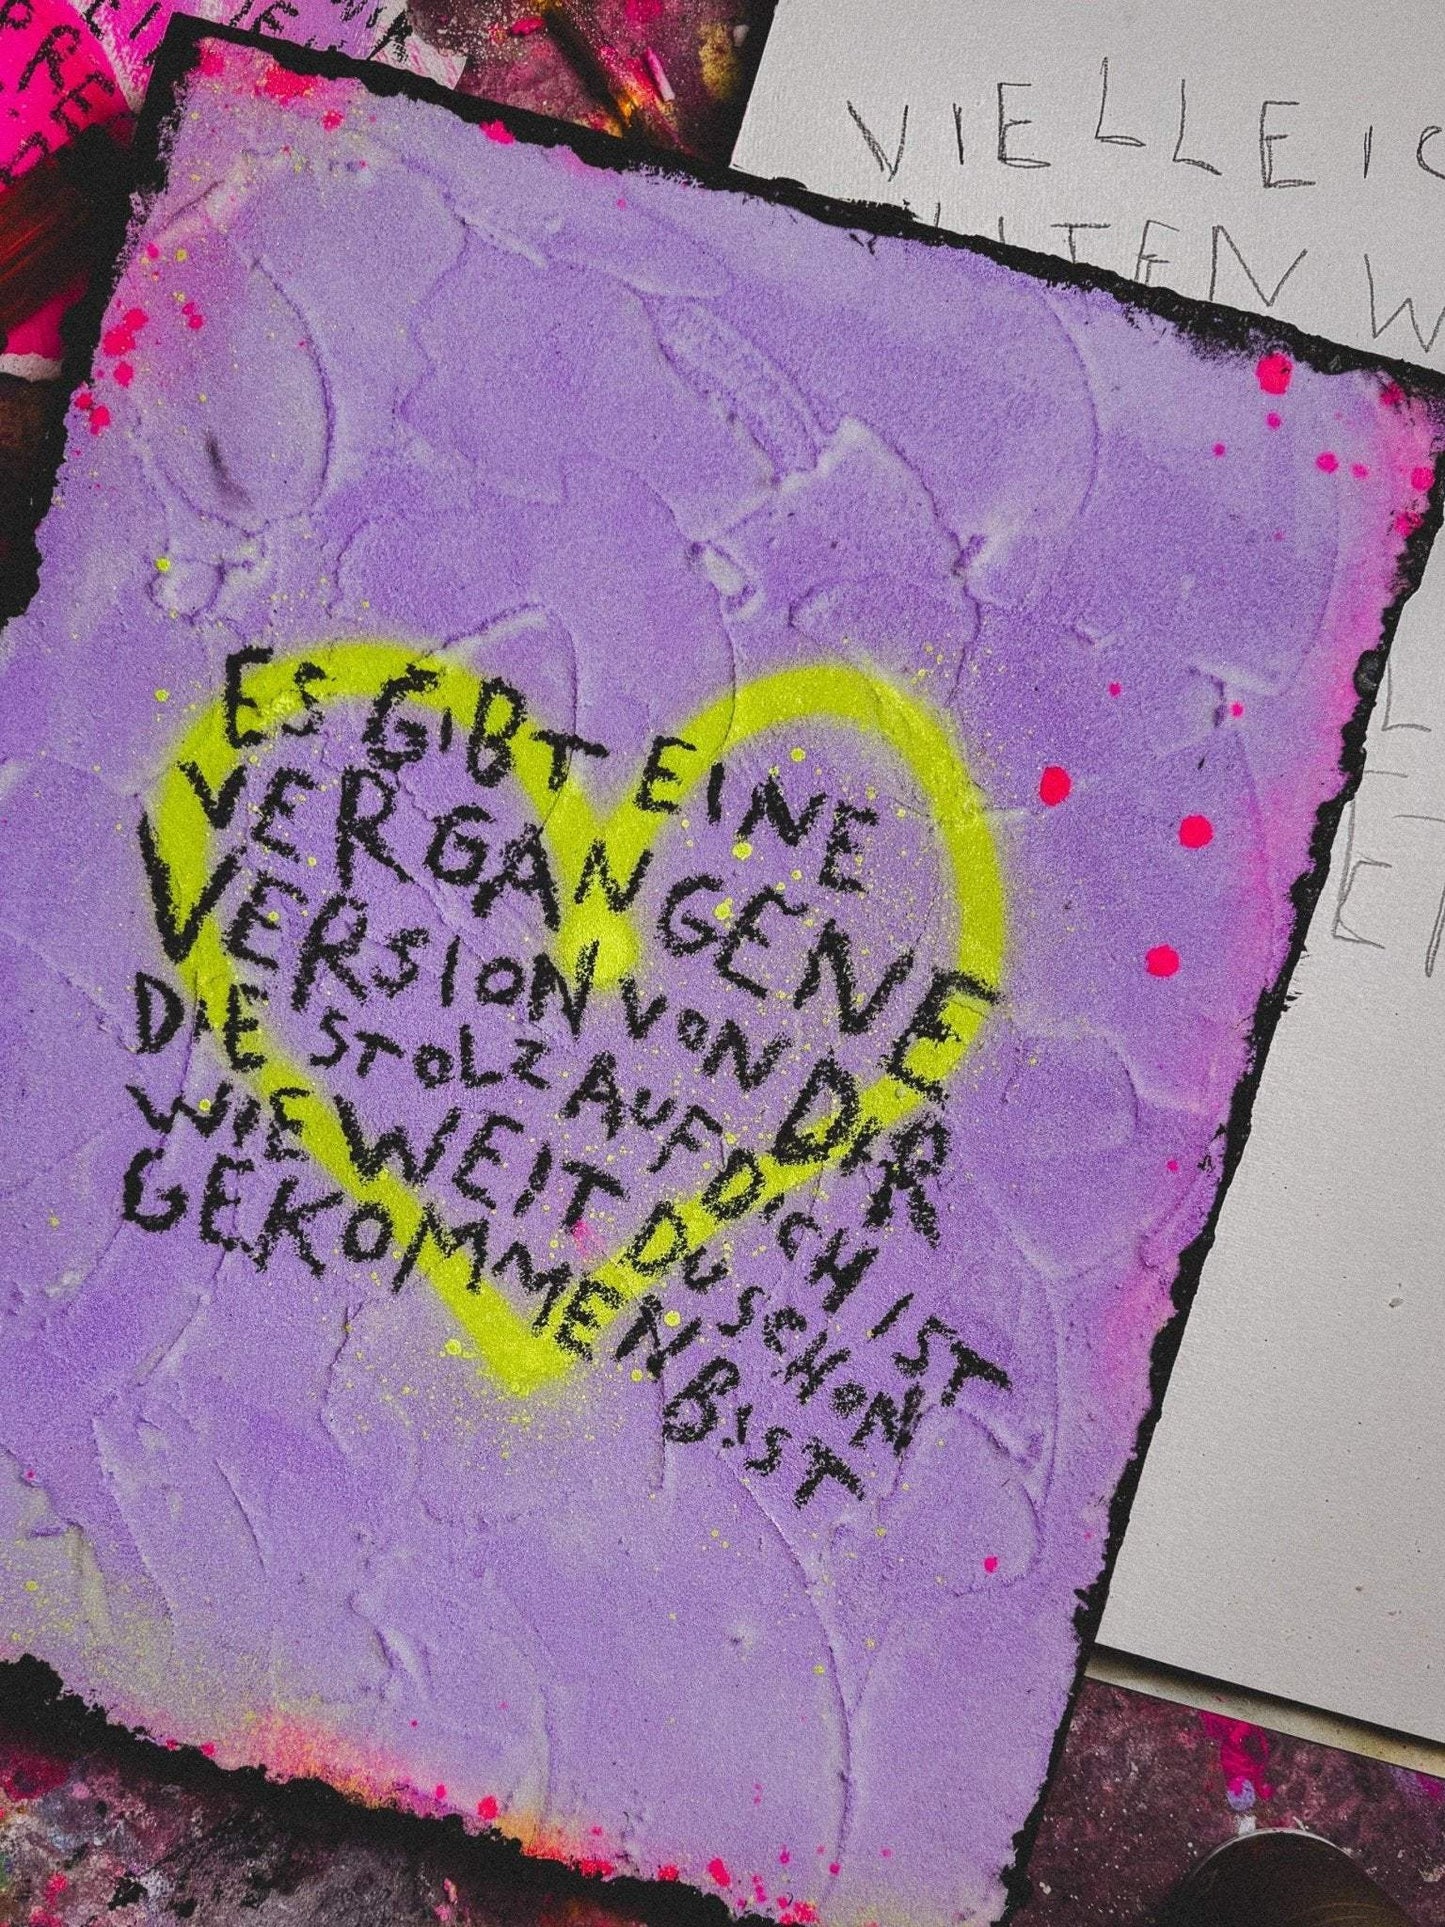 ES GIBT EINE
VERGANGENE
VERSION VON DIR
DIE STOLZ AUF DICH IST
WIE WEIT DU SCHON
GEKOMMEN BIST